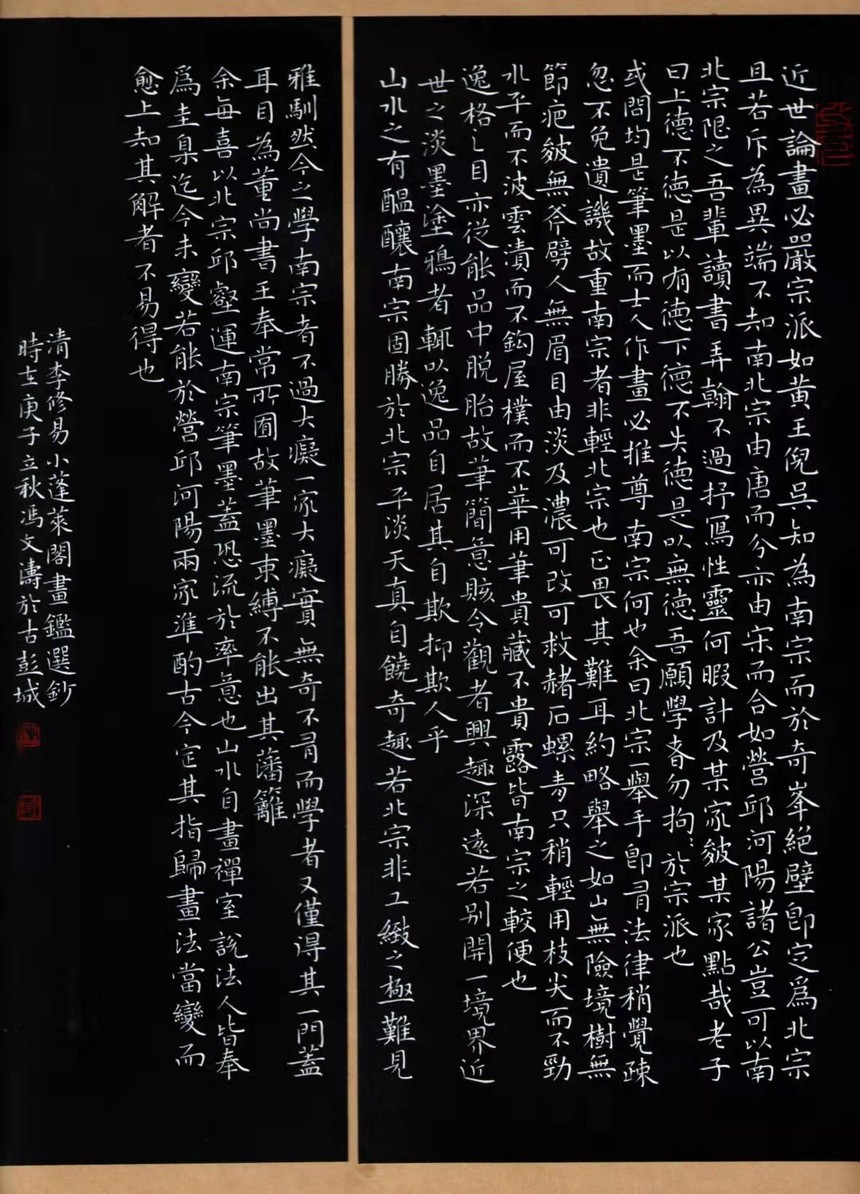 近世論畫必嚴宗派如黃王倪吳知為南宗而於奇峯絕壁即定為北宗
且若斥為異端不知南北宗由唐而分亦由宋而合如營邱河陽諸公豈可以南
北宗限之吾輩讀書弄翰不過抒寫性靈何暇計及某家皴某家點哉老子
曰上德不德是以有德下德不失德是以無德吾願學者勿拘於宗派也
或問均是筆墨而士人作畫必推尊南宗何也余曰北宗一舉手即有法律稍覺疎
忽不免遺譏故重南宗者非輕北宗也正畏其難耳約略舉之如山無險境樹無
節疤皴無斧劈人無眉目由淡及濃可改可救赭石螺青只稍輕用枝尖而不勁
水平而不波雲漬而不鈎屋樸而不華用筆貴藏不貴露皆南宗之較便也
逸格之目亦從能品中脫胎故筆簡意賅令觀者興趣深遠若別開一境界近
世之淡墨塗鴉者輒以逸品自居其自欺抑欺人乎
山水之有醞釀南宗固勝於北宗平淡天真自饒奇趣若北宗非工緻之極難見
雅馴然今之學南宗者不過大癡一家大癡實無奇不有而學者又僅得其一門蓋
耳目為董尚書王奉常所囿故筆墨束縛不能出其藩籬
余每喜以北宗邱壑運南宗筆墨蓋恐流於率意也山水自畫禪室說法人皆奉
為圭臬迄今未變若能於營邱河陽兩家準酌古今定其指歸畫法當變而
愈上知其解者不易得也
清李修易小蓬萊閣畫鑑選鈔
時在庚子立秋馮文濤於古彭城